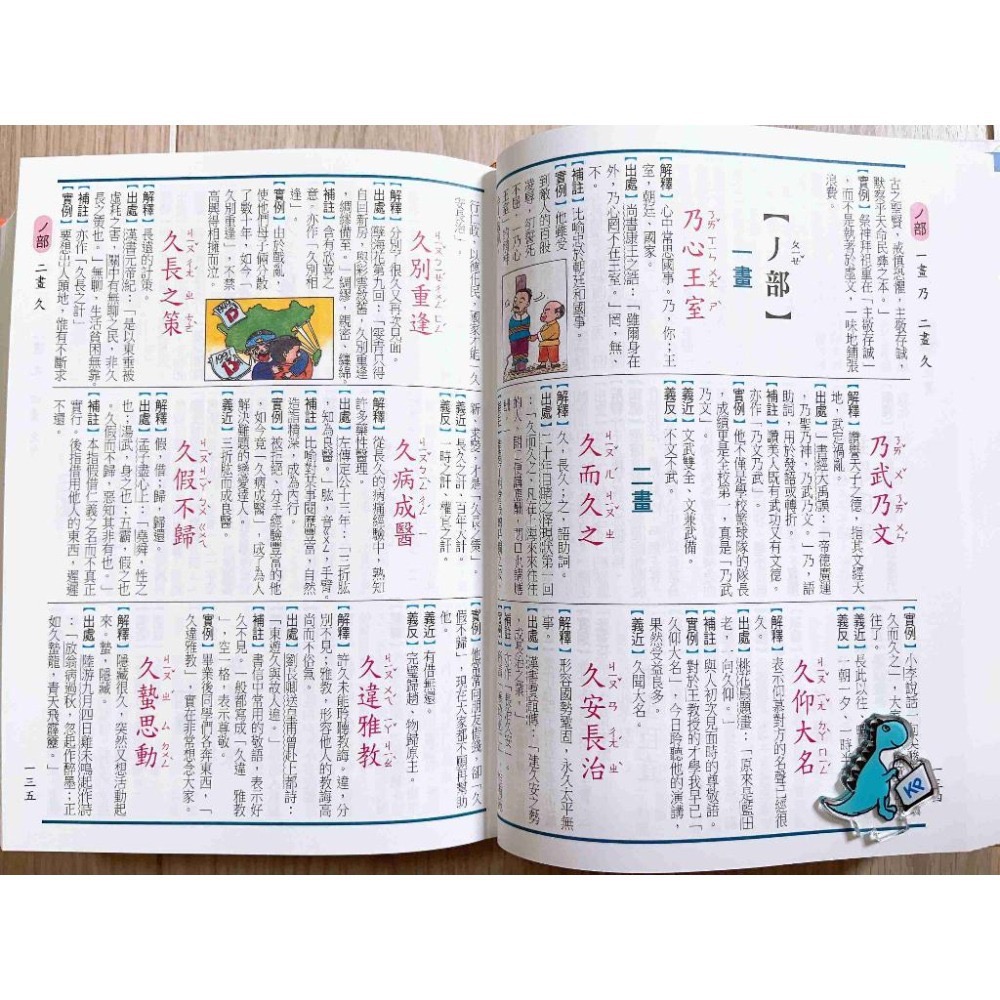 ノ部
一畫 乃 二畫 久
古之聖賢，戒慎恐懼，主敬存誠，
默察乎天命民彝之本。」
【實例】祭神拜祖重在「主敬存誠」
，而不是執著於虛文，一味地鋪張
浪費。
【ノ部】
一畫
乃心王室
【解釋】心中常思國事。乃，你；王
室，朝廷、國家。
【出處】尚書康王之誥：「雖爾身在
外，乃心罔不在王室。」罔，無、
不。
【補註】比喻忠於朝廷和國事。
【實例】他雖受
到敵人的百般
乃武乃文
【解釋】讚譽天子之德，指其文經天
地，武定禍亂。
【出處】書經大禹謨：「帝德廣運
，乃聖乃神，乃武乃文。」乃，語
助詞，用於發語或轉折。
【補註】讚美人既有武功又有文德。
亦作「乃文乃武」。
【實例】他不僅是學校籃球隊的隊長
，成績更是全校第一，真是「乃武
乃文」。
【義近】文武雙全、文兼武備。
【義反】不文不武。
二畫
久而久之
【解釋】久，長久；之，語助詞。
【出處】二十年目睹之怪現狀第一回
：「久而久之，凡在上海來來往往
【實例】小李說話一
久而久之」，
往了。
【義近】長此以往
【義反】一朝一夕、一時半
久仰大名
【解釋】表示仰慕對方的名聲已經很
久。
【出處】桃花扇題畫：「原來是藍田
老，一向久仰。」
【補註】與人初次見面時的尊敬語。
【實例】對於王教授的才學我早已「
久仰大名」，今日聆聽他的演講，
果然受益良多。
【義近】久聞大名。
久安長治
【解釋】形容國勢鞏固，永久太平無
事。
【出處】漢書賈誼傳：「建久安之勢
，成長治之業。」
ノ部
二畫 久
久別重逢
【解釋】分別了很久又再次見面。
【出處】孽海花第九回：「雯青只得
自回新房，與彩雲敘舊，久別重逢
，綢繆備至。」綢繆，親密、纏綿。
【補註】含有欣喜之
意。亦作「久別相
逢」。
【實例】由於戰亂，
使他們母子倆分散
了數十年，如今「
久別重逢」，不禁
高興得相擁而泣。
久長之策
【解釋】長遠的計策。
【出處】漢書元帝紀：「是以東垂被
虛耗之害，關中有無聊之民，非久
長之策也。」無聊，生活貧困無靠。
【補註】亦作「久長之計」
【實例】要想出人頭地，惟有不斷求
【義近】長久之計、百年大計。
【義反】一時之計、權宜之計。
久病成醫
【解釋】從長久的病痛經驗中，熟知
許多藥性醫理。
【出處】左傳定公十三年：「三折肱
，知為良醫。」肱，音ㄍㄨㄥ，手臂。
【補註】比喻對某事閱歷豐富，自然
造詣精深，成為內行。
【實例】被拒絕、分手經驗豐富的他
，如今竟「久病成醫」，成了為人
解決難題的戀愛達人。
【義近】三折肱而成良醫。
久假不歸
【解釋】假，借；歸，歸還。
【出處】孟子盡心上：「堯舜，性之
也；湯武，身之也；五霸，假之也
。久假而不歸，惡知其非有也。」
【補註】本指假借仁義之名而不真正
實行。後指借用他人的東西，遲遲
不還。
【實例】他常常向朋友借錢，卻「久
假不歸」，現在大家都不願再幫助
他。
【義近】有借無還。
【義反】完璧歸趙、物歸原主。
久違雅教
【解釋】許久未能聆聽教誨。違，分
別不見；雅教，形容他人的教誨高
尚而不俗氣。
【出處】劉長卿送皇甫曾赴上都詩：
「東遊久與故人違。」
【補註】書信中常用的敬語，表示好
久不見。一般都寫成「久違 雅教
」，空一格，表示尊敬。
【實例】畢業後同學們各奔東西，「
久違雅教」，實在非常想念大家。
久蟄思動
【解釋】隱藏很久，突然又想活動起
來。蟄，隱藏。
【出處】陸游九月四日雞未鳴起作詩
：「放翁病過秋，忽起作醉墨；正
如久蟄龍，青天飛霹靂。」
一三五
KP